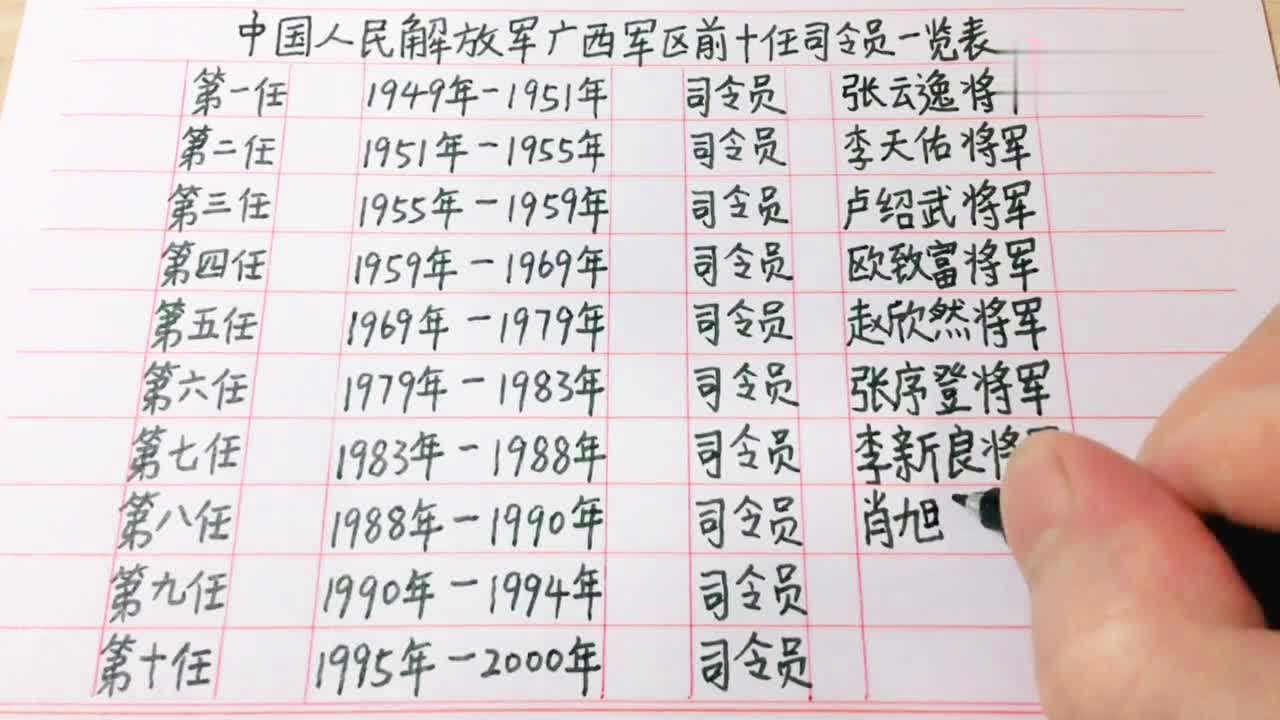 中国人民解放军广西军区前十任司令员一览表
第一任 1949年-1951年 司令员 张云逸将
第二任 1951年-1955年 司令员 李天佑将军
第三任 1955年-1959年 司令员 卢绍武将军
第四任 1959年-1969年 司令员 欧致富将军
第五任 1969年-1979年 司令员 赵欣然将军
第六任 1979年-1983年 司令员 张序登将军
第七任 1983年-1988年 司令员 李新良将
第八任 1988年-1990年 司令员 肖旭
第九任 1990年-1994年 司令员
第十任 1995年-2000年 司令员